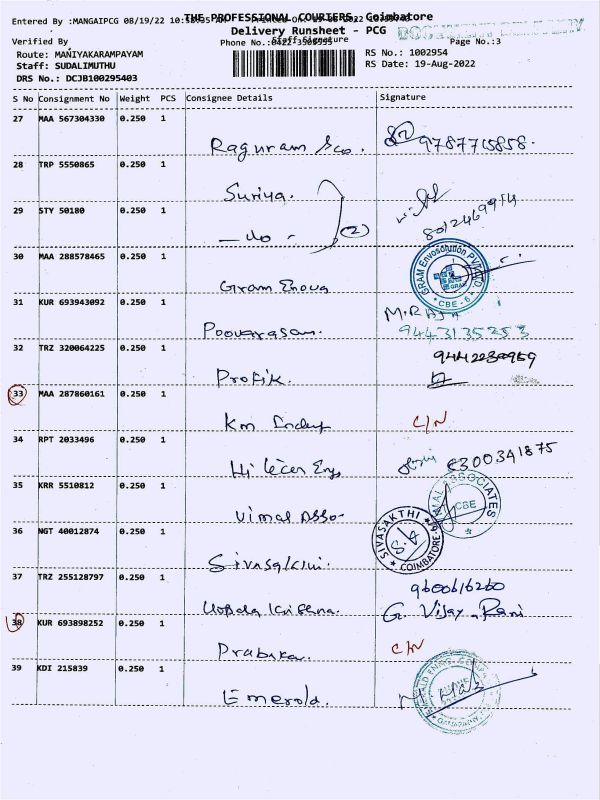 Entered By :MANGAIPCG 08/19/22
THE PROFESSIONAL COURIERS, Coimbatore
Delivery Runsheet - PCG
Verified By
Staff Signature
Phone No.:0422-3506955
Page No.:3
Route: MANIYAKARAMPAYAM
RS No.: 1002954
Staff: SUDALIMUTHU
RS Date: 19-Aug-2022
DRS No.: DCJB100295403
S No Consignment No Weight PCS Consignee Details Signature
27 MAA 567304330 0.250 1
Raguram 9787715858.
28 TRP 5550865 0.250 1
Suriya.
8012469914
29 STY 50180 0.250 1
- do - (2)
30 MAA 288578465 0.250 1
Gram Enova
GRAM Envosolution PVT LTD
GRAM
CBE - 6
31 KUR 693943092 0.250 1
M.RAJA
Poovarasan. 9443135253
32 TRZ 320064225 0.250 1
Profik.
33 MAA 287860161 0.250 1
Km C/N
34 RPT 2033496 0.250 1
Hi Tecer Eng 6300341875
35 KRR 5510812 0.250 1
Vimal Asso-
VIMAL ASSOCIATES
CBE
36 NGT 40012874 0.250 1
SIVASAKTHI
COIMBATORE
Sivasakthi.
37 TRZ 255128797 0.250 1
9600616260
Krishna. G. Vijay Rani
38 KUR 693898252 0.250 1
Prabakar C/N
39 KDI 215839 0.250 1
Emerold.